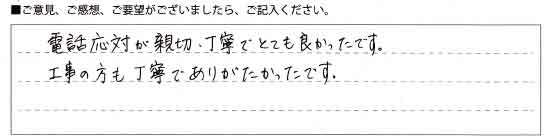 ■ご意見、ご感想、ご要望がございましたら、ご記入ください。
電話応対が親切、丁寧でとても良かったです。
工事の方も丁寧でありがたかったです.